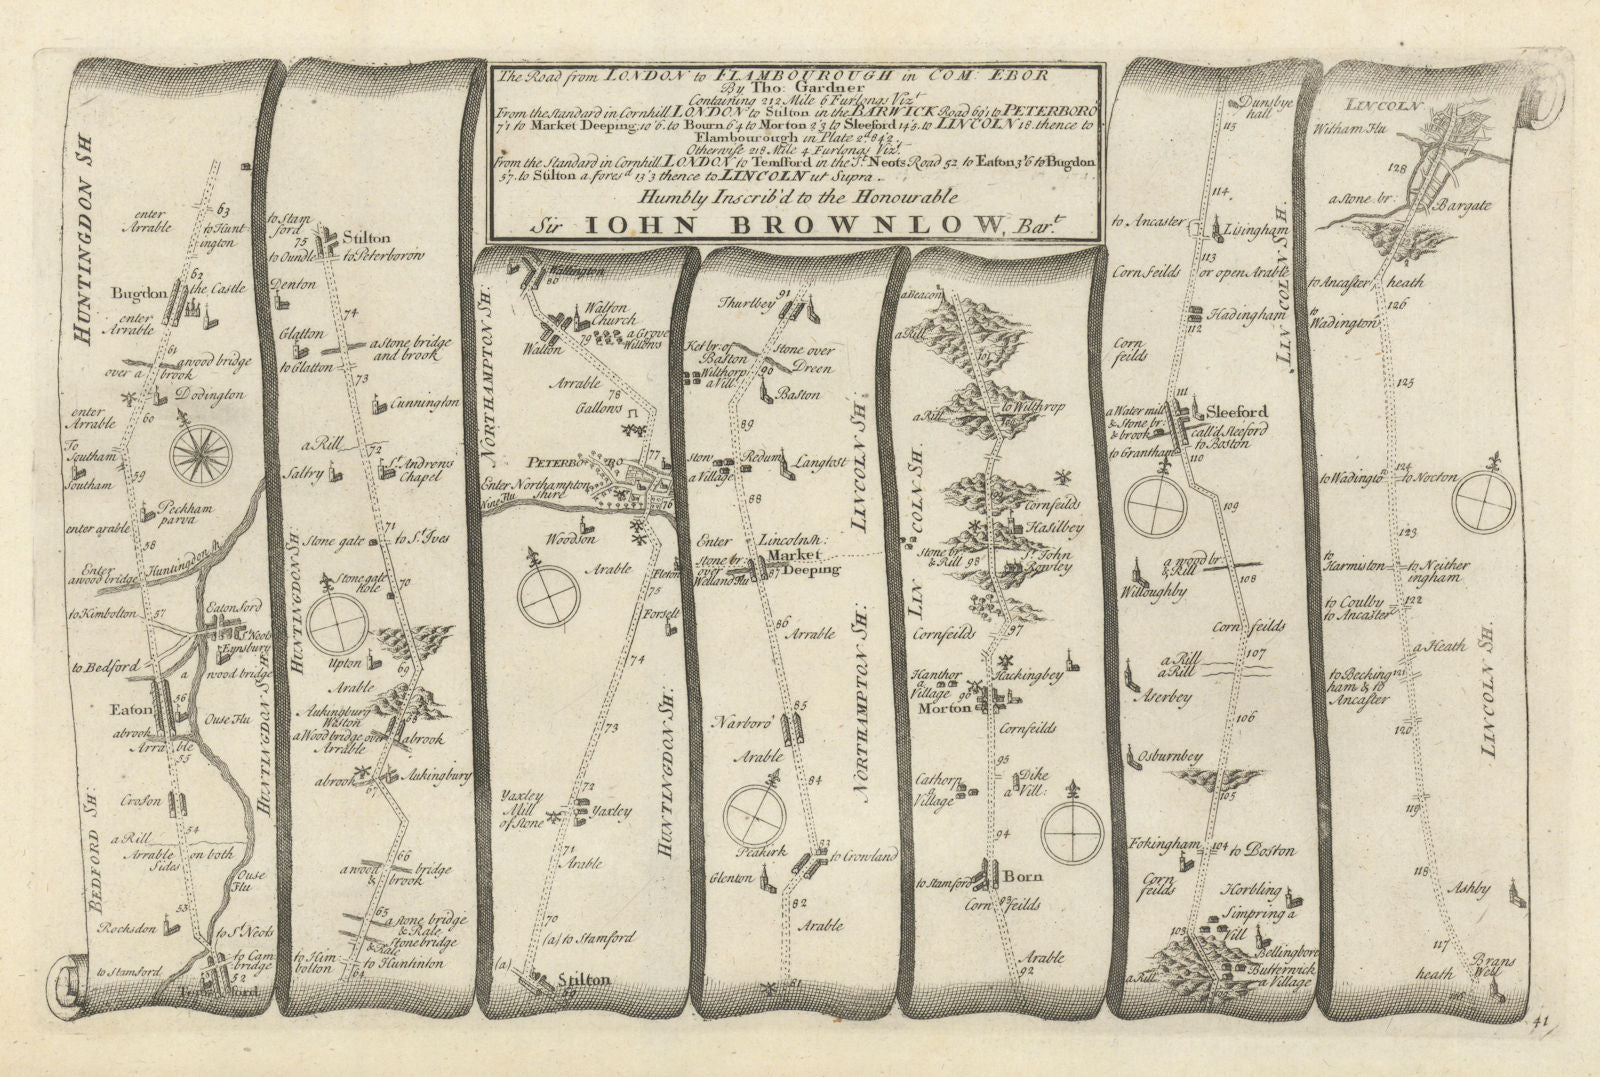 The Road from LONDON to FLAMBOUROUGH in COM: EBOR
By Tho: Gardner
Containing 212 Mile 6 Furlongs Vizt
From the Standard in Cornhill LONDON to Stilton in the BARWICK Road 69'1 to PETERBORO
7'1 to Market Deeping, 10'6. to Bourn 6'4 to Morton 2'3 to Sleeford 14'5. to LINCOLN 18. thence to
Flambourough in Plate 2d. 84'2.
Otherwise 218 Mile 4 Furlongs Vizt.
From the Standard in Cornhill LONDON to Temsford in the St. Neots Road 52 to Eaton 3'6 to Bugdon
57. to Stilton aforesd 13'3 thence to LINCOLN ut Supra.
Humbly Inscrib'd to the Honourable
Sir IOHN BROWNLOW, Bart.
HUNTINGDON SH
63
enter
Arrable
to Hunt
ington
62
the Castle
Bugdon
enter
Arrable
61
a wood bridge
over a
brook
Dodington
60
enter
Arrable
To
Southam
59
Southam
Peckham
parva
enter arable
58
Huntingdon
Enter
a wood bridge
to Kimbolton
57
Eatonford
St Neots
Eynsbury
to Bedford
a
wood bridge
56
Eaton
Ouse Flu
abrook
Arrable
55
HUNTINGDON SH
Croson
54
a Rill
Arrable
on both
Sides
BEDFORD SH:
Ouse
Flu
53
Rocksdon
to St Neots
to Cam
bridge
to Stamford
52
Temsford
to Stam
ford
75
Stilton
to Oundle
to Peterborow
Denton
74
Glatton
a Stone bridge
and brook
to Glatton
73
Cunnington
a Rill
72
Saltry
St Andrews
Chapel
71
Stone gate
to St Ives
HUNTINGDON SH
Stone gate
Hole
70
Upton
69
Arable
Aukingbury
Waston
68
a Wood bridge over
abrook
Arrable
abrook
Aukingbury
67
66
a wood
bridge
&
brook
65
a stone bridge
& Rale
Stone bridge
& Rale
to Kim
bolton
to Huntinton
64
NORTHAMPTON SH:
Wallington
80
Walton
Church
79
a Grove
Willows
Walton
Arrable
78
Gallows
77
PETERBORO
Enter Northampton
shire
76
Nine Flu
Woodson
Arable
Fleton
75
Forselt
74
73
HUNTINGDON SH.
72
Yaxley
Mill
of Stone
Yaxley
71
Arable
70
(a) to Stamford
(a)
Stilton
69
91
Thurlbey
Ket br. of
Baston
Stone over
Dreen
Wilthorp
a Vill.
90
Baston
89
LINCOLN SH.
stow
a Village
Redum
Langtost
88
Enter
Lincolnsh:
Stone br.
over
Welland Flu
Market
Deeping
87
86
Arrable
NORTHAMPTON SH:
85
Narboro'
Arable
84
83
Peakirk
to Crowland
Glenton
82
Arable
81
a Beacon
a Rill
101
to Wilthrop
a Rill
100
LIN COLN SH.
99
Cornfeilds
Hasilbey
Stone br.
& Rill
98
St. John
Rowley
97
Cornfeilds
Hanthor
a
Village
96
Hackingbey
Morton
Cornfeilds
95
Cathorp
a
Village
Dike
a Vill:
94
Born
to Stamford
93
Corn feilds
Arable
92
Dunsbye
hall
115
114
to Ancaster
Lisingham
113
Corn feilds
or open Arable
LIN COLN SH.
Hadingham
112
Corn
feilds
111
a Water mill
& Stone br.
& brook
Sleeford
call'd Sleeford
to Boston
to Grantham
110
109
a wood br.
& Rill
108
Willoughby
Corn feilds
107
a Rill
a Rill
Aserbey
106
Osburnbey
105
Fokingham
104
to Boston
Corn
feilds
Horbling
Simpring a
Vill
103
Bellingbore
Butterwick
a Village
a Rill
LINCOLN
Witham Flu
128
a stone br.
Bargate
to Ancaster
heath
126
to
Wadington
125
124
to Wadingto
to Norton
123
to
Harmiston
to Neither
ingham
122
to Coulby
to Ancaster
a Heath
121
to Becking
ham & to
Ancaster
LINCOLN SH.
120
119
118
Ashby
117
heath
Brans
Well
116
41